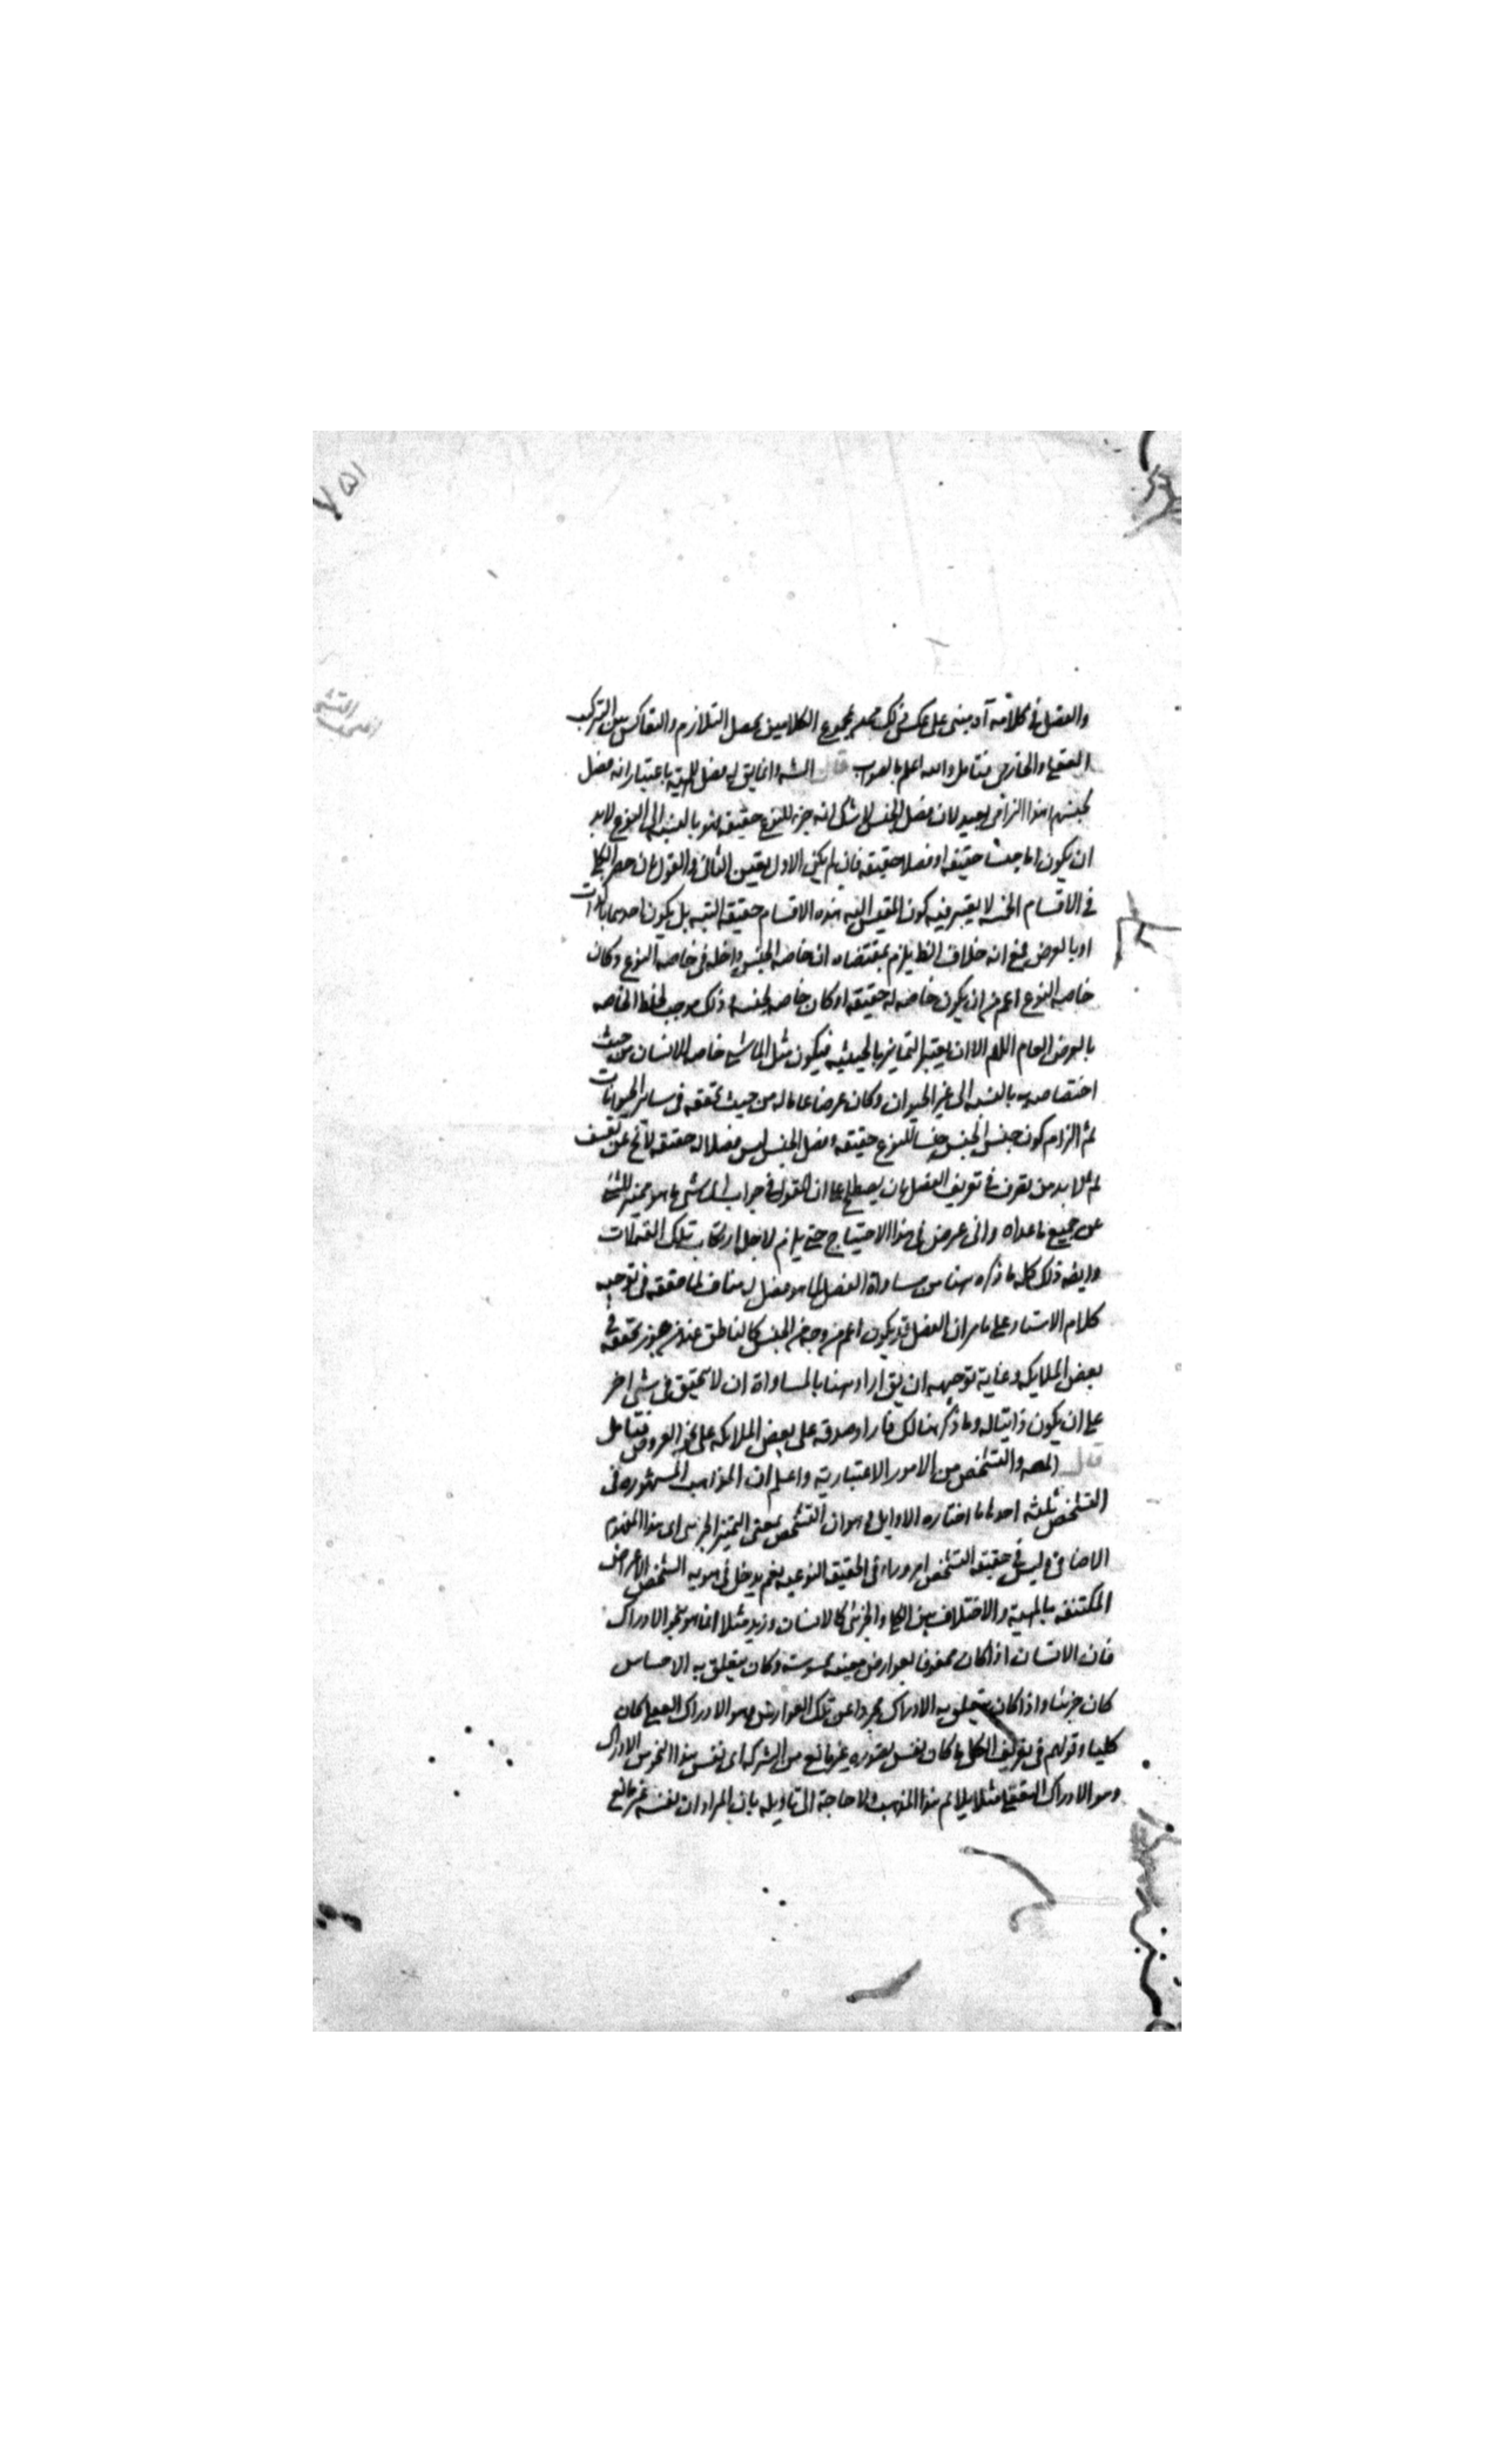 والفصل في كلامه آه مبنى على عكس ذلك مجموع الكلامين يحصل التلازم والتعاكس بين التركيب
العقلى والخارجى فتامل والله اعلم بالصواب قال الشه وانما يق له فصل المهية باعتبار انه فصل
لجنسهم هذا التزام بعيد لان فصل الجنس لا شك انه جزء للنوع حقيقة فهو بالنسبة الى النوع لابد
ان يكون اما جنسا حقيقة او فصلا حقيقة فان لم يكن الاول تعين الثانى والقول بان حصر الكلى
في الاقسام الخمسة لا يعتبر فيه كون المقيس اليه هذه الاقسام حقيقة البتة بل يكون احدها بالذات
او بالعرض مع انه خلاف الظ يلزم بمقتضاه ان خاصه الجنس داخله فى خاصه النوع وكان
خاصه النوع اعم من ان يكون خاصه له حقيقه او كان خاصه لجنسه وذلك موجب لخلط الخاصه
بالعرض العام اللهم الا ان يعتبر التمايز بالحيثيه فيكون مثل الماشى خاصه الانسان من حيث
اختصاصه به بالنسبه الى غير الحيوان وكان عرضا عاما له من حيث تحققه فى سائر الحيوانات
ثم التزام كون جنس الجنس جنسا للنوع حقيقه وفصل الجنس ليس فصلا له حقيقه لا يخ عن تعسف
ثم لا بد من تصرف في تعريف الفصل بان يصطلح على ان المقول فى جواب اى شى ما هو مميز للشئ
عن جميع ما عداه وانى عرض فى هذا الاحتياج حتى يلزم لاجل ارتكاب تلك التمحلات
وايضه ذلك كله ما ذكره هنا من مساواة الفصل لما هو فصل له مناف لما حققه فى توجيه
كلام الاستاد على ما مر ان الفصل قد يكون اعم من وجه من الجنس كالناطق عند من يجوز تحققه فى
بعض الملايكه وغاية توجيهه ان يق اراد هنا بالمساواة ان لا يتحقق فى شى اخر
على ان يكون ذاتيا له وما ذكر هنالك فاراد صدقه على بعض الملايكه على نحو العروض فتامل
قال المصه والتشخص من الامور الاعتبارية واعلم ان المذاهب المشهوره فى
التشخص ثلثه احدها ما اختاره الاوايل وهو ان التشخص بمعنى التميز الجزئى اى هذا المفهوم
الاضافى وليس في حقيقه التشخص امر وراء الحقيقه النوعيه نعم يدخل فى هويه الشخص الاعراض
المكتنفه بالمهية والاختلاف بين الكلى والجزئى كالانسان وزيد مثلا انما هو بنحو الادراك
فان الانسان اذا كان محفوفا بعوارض معينه محسوسة وكان يتعلق به الاحساس
كان جزئيا واذا كان يتعلق به الادراك مجردا عن تلك العوارض وهو الادراك العقلى كان
كليا وقولهم فى تعريف الكلى ما كان نفس تصوره غير مانع من الشركه اى نفس هذا النحو من الادراك
وهو الادراك التعقلى مثلا يلايم هذا المذهب ولا حاجة الى تاويله بان المراد ان نفسه غير مانع